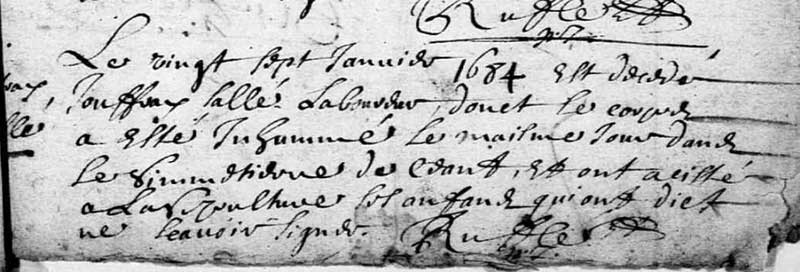 Rufflé
Le vingt sept Janvier 1684 est decedé
Jouffroy sallé Laboureur, donct le corps
a esté Inhummé le maisme Jour dans
le Simmetierre de ceant, Et ont acisté
a La Sepulture ses anfans qui ont dict
ne scavoir signer. Rufflé